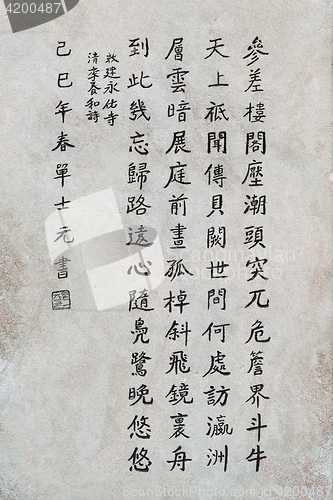 參差樓閣壓潮頭突兀危簷界斗牛
天上祗聞傳貝闕世間何處訪瀛洲
層雲暗展庭前畫孤棹斜飛鏡裏舟
到此幾忘歸路遠心隨鳧鷺晚悠悠
敕建永佑寺
清李養和詩
己巳年春單士元書